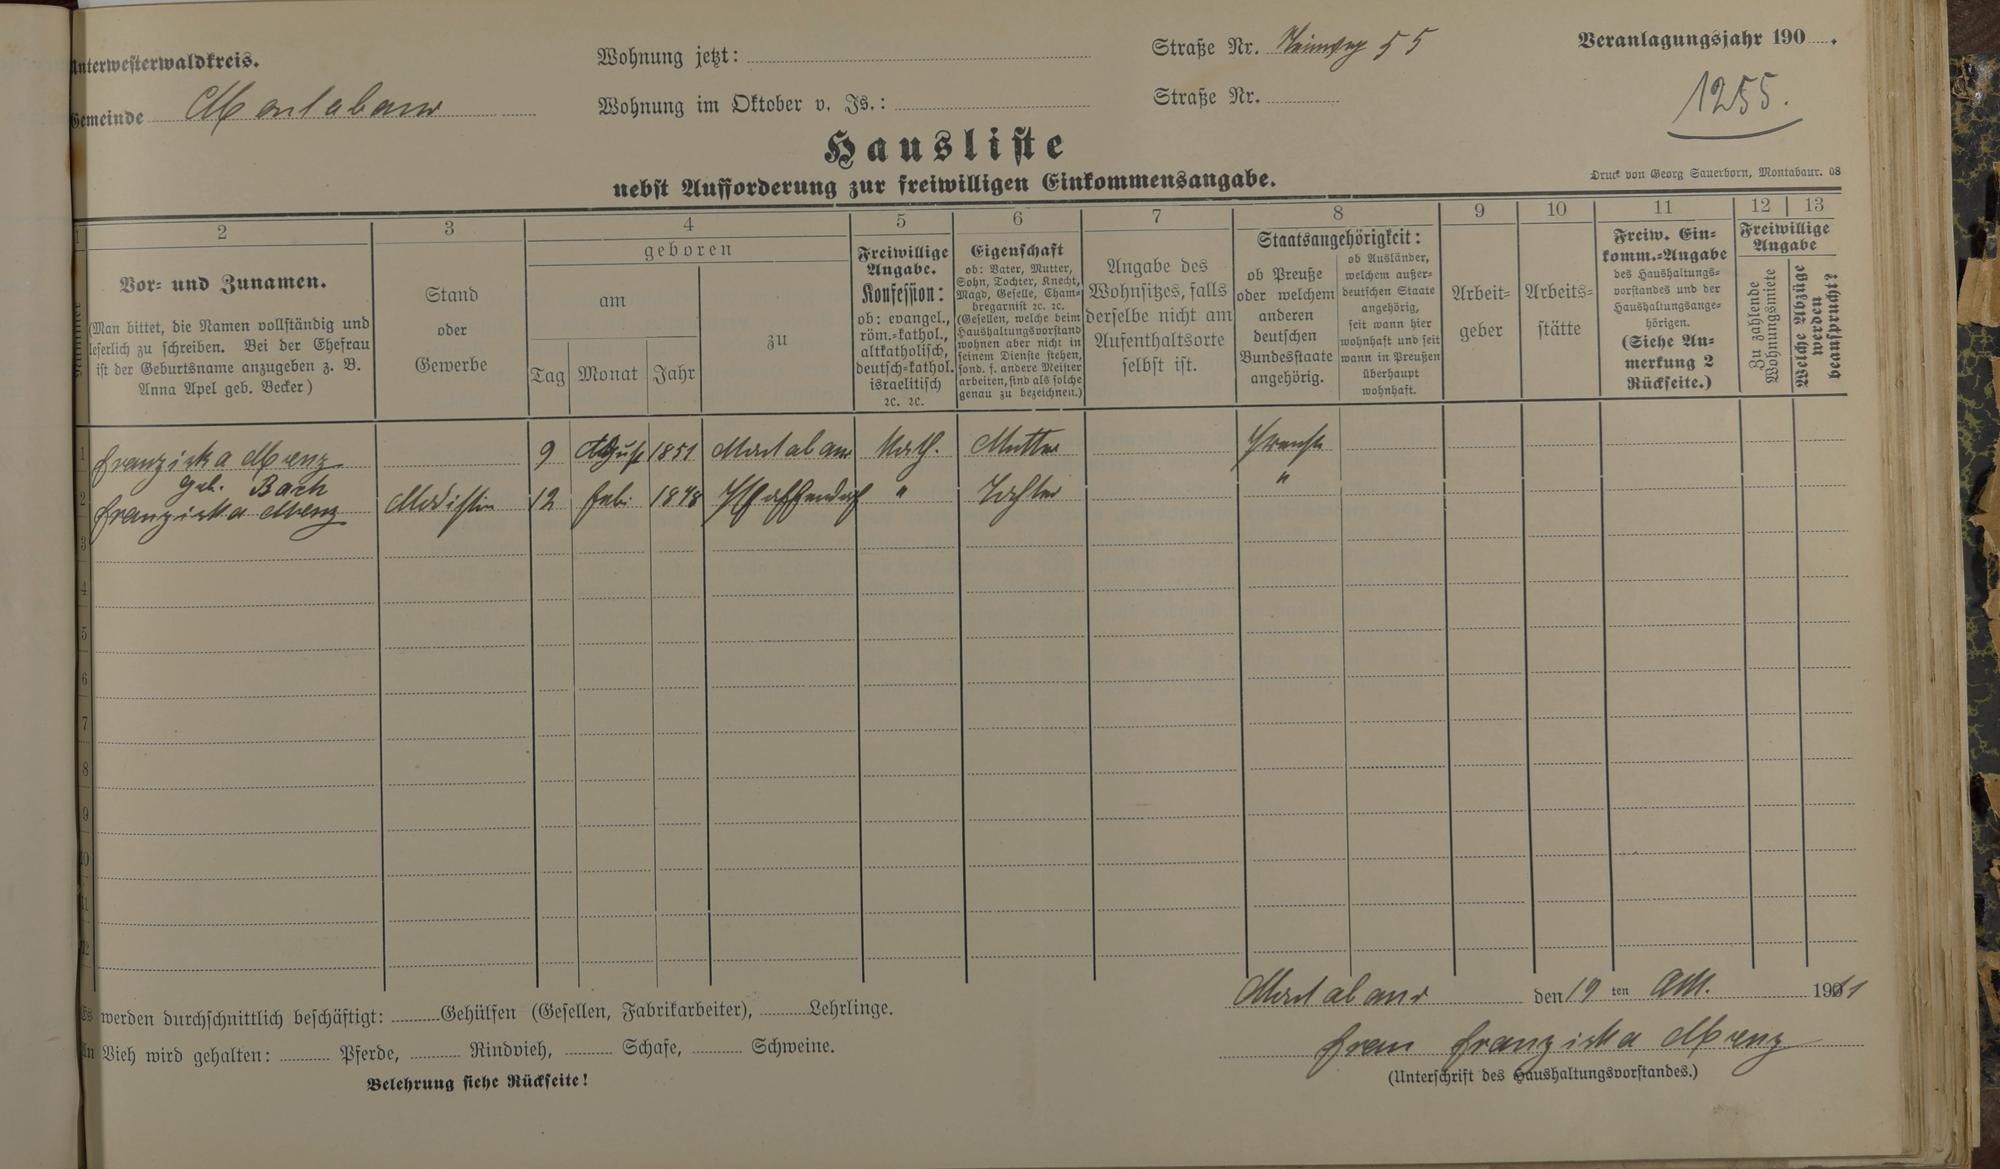 Unterwesterwaldkreis.
Gemeinde Montabaur
Wohnung jetzt:
Straße Nr. 55
Wohnung im Oktober v. Js.:
Straße Nr.
Veranlagungsjahr 190 .
1255.
Hausliste
nebst Aufforderung zur freiwilligen Einkommensangabe.
Druck von Georg Sauerborn, Montabaur. 08
1 2 3 4 5 6 7 8 9 10 11 12 13
Nummer
Vor- und Zunamen.
(Man bittet, die Namen vollständig und
leserlich zu schreiben. Bei der Ehefrau
ist der Geburtsname anzugeben z. B.
Anna Apel geb. Becker)
Stand
oder
Gewerbe
geboren
am
Tag Monat Jahr
zu
Freiwillige
Angabe.
Konfession:
ob: evangel.,
röm.-kathol.,
altkatholisch,
deutsch-kathol.
israelitisch
ec. ec.
Eigenschaft
ob: Vater, Mutter,
Sohn, Tochter, Knecht,
Magd, Geselle, Cham-
bregarnist ec. ec.
(Gesellen, welche beim
Haushaltungsvorstand
wohnen aber nicht in
seinem Dienste stehen,
sond. f. andere Meister
arbeiten, sind als solche
genau zu bezeichnen.)
Angabe des
Wohnsitzes, falls
derselbe nicht am
Aufenthaltsorte
selbst ist.
Staatsangehörigkeit:
ob Preuße
oder welchem
anderen
deutschen
Bundesstaate
angehörig.
ob Ausländer,
welchem außer-
deutschen Staate
angehörig,
seit wann hier
wohnhaft und seit
wann in Preußen
überhaupt
wohnhaft.
Arbeit-
geber
Arbeits-
stätte
Freiw. Ein-
komm.-Angabe
des Haushaltungs-
vorstandes und der
Haushaltungsange-
hörigen.
(Siehe An-
merkung 2
Rückseite.)
Freiwillige
Angabe
Zu zahlende
Wohnungsmiete
Welche Abzüge
werden
beansprucht?
1 Franziska Menz 9 August 1851 Montabaur Kath. Mutter Preuße
geb. Bach
2 Franziska Menz Modistin 12 Feb. 1878 Pfaffendorf " Tochter "
3
4
5
6
7
8
9
10
11
12
Es werden durchschnittlich beschäftigt: Gehülfen (Gesellen, Fabrikarbeiter), Lehrlinge.
An Vieh wird gehalten: Pferde, Rindvieh, Schafe, Schweine.
Belehrung siehe Rückseite!
Montabaur den 19 ten Okt. 1911
Frau Franziska Menz
(Unterschrift des Haushaltungsvorstandes.)